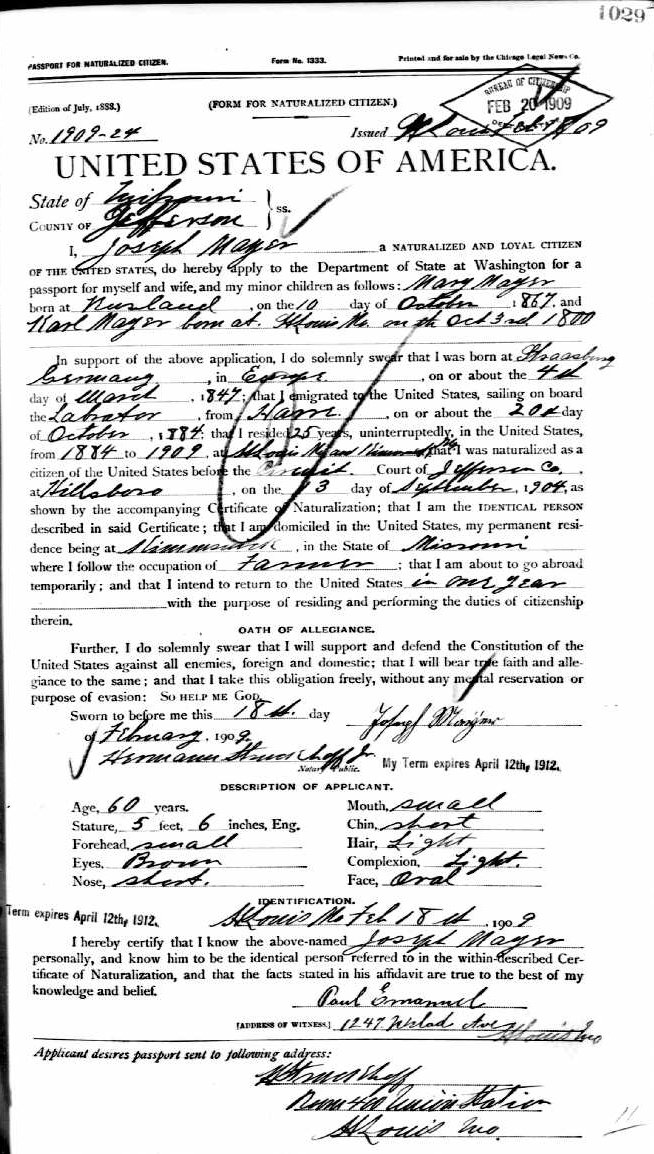 1029
PASSPORT FOR NATURALIZED CITIZEN. Form No. 1333. Printed and for sale by the Chicago Legal News Co.
BUREAU OF CITIZENSHIP
FEB 20 1909
(Edition of July, 1888.) (FORM FOR NATURALIZED CITIZEN.)
No. 1909-24 Issued
UNITED STATES OF AMERICA.
State of Missouri
COUNTY OF Jefferson } ss.
I, Joseph Mayer a NATURALIZED AND LOYAL CITIZEN
OF THE UNITED STATES, do hereby apply to the Department of State at Washington for a
passport for myself and wife, and my minor children as follows: Mary Mayer
born at Rusland, on the 10 day of October, 1867, and
Karl Mayer born at St Louis Mo. on th Oct 3rd. 1800
In support of the above application, I do solemnly swear that I was born at Straasburg
Germany, in Europe., on or about the 4th
day of March, 1847; that I emigrated to the United States, sailing on board
the Labrator, from Havre., on or about the 20th day
of October, 1884; that I resided 25 years, uninterruptedly, in the United States,
from 1884 to 1909, at St Louis Mo and that I was naturalized as a
citizen of the United States before the Circuit. Court of Jefferson Co.,
at Hillsboro, on the 13 day of September, 1904, as
shown by the accompanying Certificate of Naturalization; that I am the IDENTICAL PERSON
described in said Certificate; that I am domiciled in the United States, my permanent resi-
dence being at, in the State of Missouri
where I follow the occupation of Farmer; that I am about to go abroad
temporarily; and that I intend to return to the United States in one year
with the purpose of residing and performing the duties of citizenship
therein.
OATH OF ALLEGIANCE.
Further, I do solemnly swear that I will support and defend the Constitution of the
United States against all enemies, foreign and domestic; that I will bear true faith and alle-
giance to the same; and that I take this obligation freely, without any mental reservation or
purpose of evasion: SO HELP ME GOD.
Sworn to before me this 18th. day Joseph Mayer
of February, 1909.
Hermann Struckhoff Jr
Notary Public. My Term expires April 12th, 1912.
DESCRIPTION OF APPLICANT.
Age, 60 years. Mouth, small
Stature, 5 feet, 6 inches, Eng. Chin, short
Forehead, small Hair, Light
Eyes, Brown Complexion, Light.
Nose, short. Face, Oval
IDENTIFICATION.
Term expires April 12th, 1912. St Louis Mo Feb 18th, 1909
I hereby certify that I know the above-named Joseph Mayer
personally, and know him to be the identical person referred to in the within-described Cer-
tificate of Naturalization, and that the facts stated in his affidavit are true to the best of my
knowledge and belief.
Paul Emanuel
[ADDRESS OF WITNESS.] 1247 Ave St Louis Mo
Applicant desires passport sent to following address:
H Struckhoff
Room 400 Union Station
St Louis Mo.
11